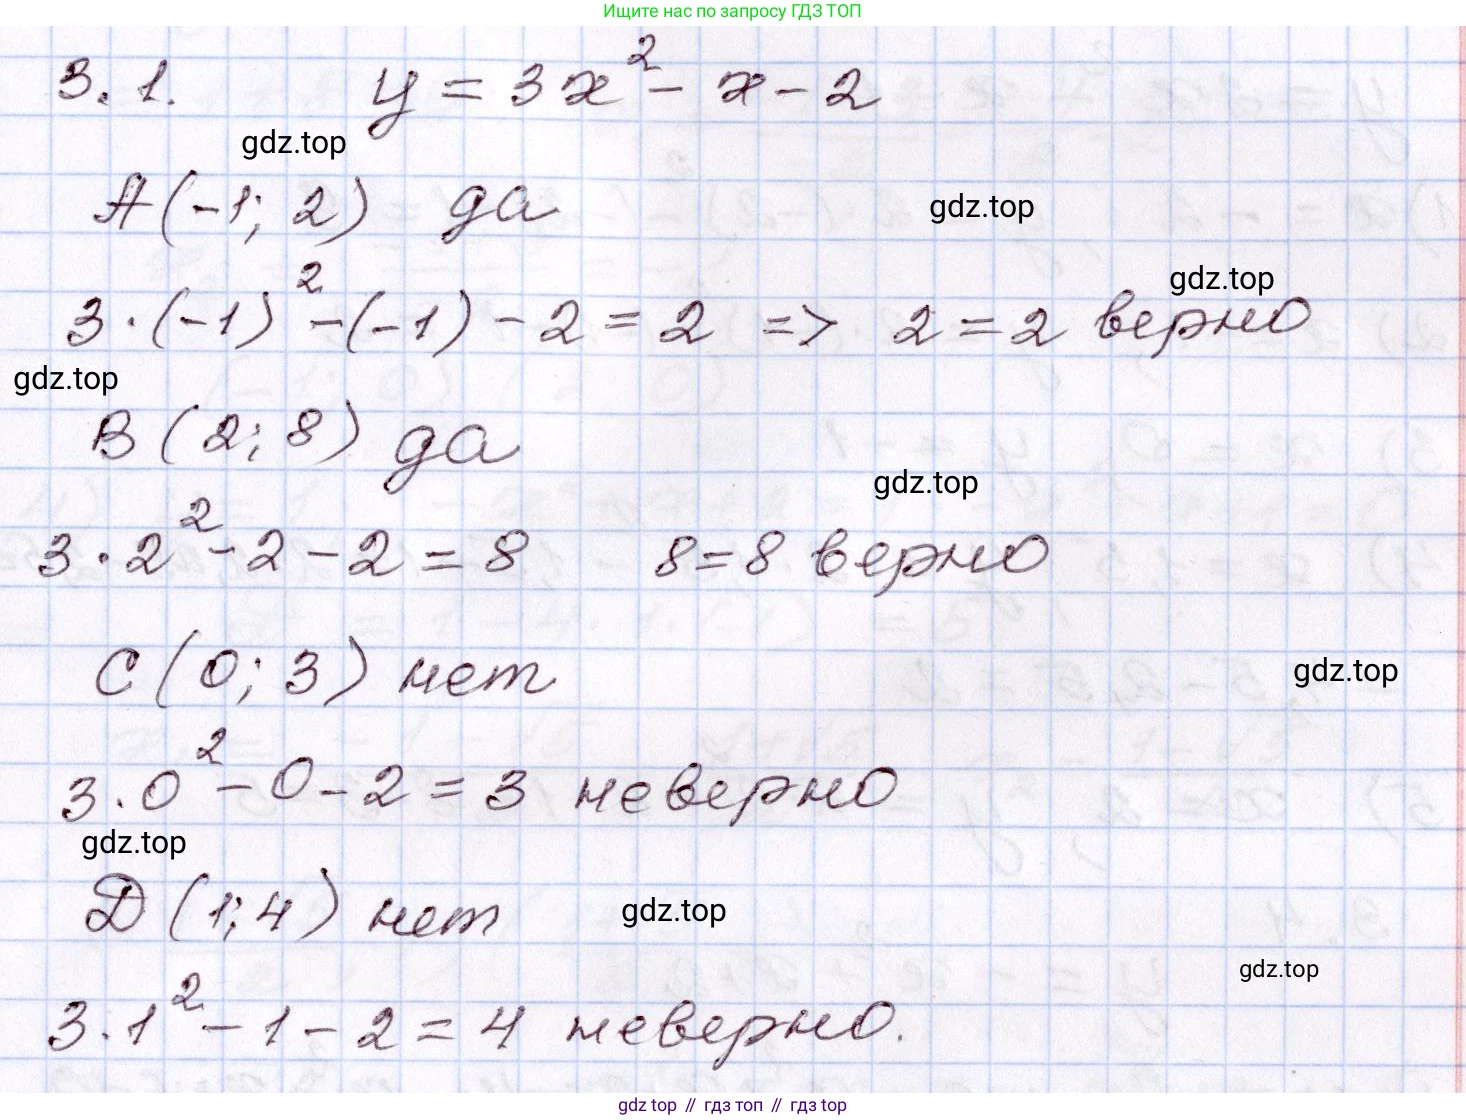 Ищите нас по запросу ГДЗ ТОП
3.1. y = 3x² - x - 2
gdz.top
A(-1; 2) да
gdz.top
gdz.top
3·(-1)² - (-1) - 2 = 2 => 2 = 2 верно
gdz.top
B(2; 8) да
gdz.top
3·2² - 2 - 2 = 8 8 = 8 верно
C(0; 3) нет
gdz.top
3·0² - 0 - 2 = 3 неверно
gdz.top
D(1; 4) нет
gdz.top
gdz.top
3·1² - 1 - 2 = 4 неверно.
gdz top // гдз топ // гдз top